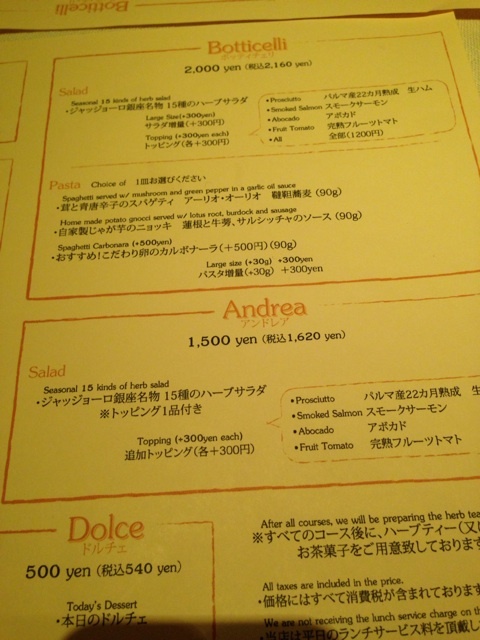 Botticelli
Botticelli
ボッティチェリ
2,000 yen (税込2,160 yen)
Salad
Seasonal 15 kinds of herb salad
・ジャッジョーロ銀座名物 15種のハーブサラダ
Large Size(+300yen)
サラダ増量(+300円)
Topping (+300yen each)
トッピング(各+300円)
•Prosciutto パルマ産22カ月熟成 生ハム
•Smoked Salmon スモークサーモン
•Abocado アボカド
•Fruit Tomato 完熟フルーツトマト
•All 全部(1200円)
Pasta Choice of 1皿お選びください
Spaghetti served w/ mushroom and green pepper in a garlic oil sauce
・茸と青唐辛子のスパゲティ アーリオ・オーリオ 韃靼蕎麦 (90g)
Home made potato gnocci served w/ lotus root, burdock and sausage
・自家製じゃが芋のニョッキ 蓮根と牛蒡、サルシッチャのソース (90g)
Spaghetti Carbonara (+500yen)
・おすすめ!こだわり卵のカルボナーラ(+500円)(90g)
Large size (+30g) +300yen
パスタ増量(+30g) +300yen
Andrea
アンドレア
1,500 yen (税込1,620 yen)
Salad
Seasonal 15 kinds of herb salad
・ジャッジョーロ銀座名物 15種のハーブサラダ
※トッピング1品付き
Topping (+300yen each)
追加トッピング(各+300円)
•Prosciutto パルマ産22カ月熟成 生
•Smoked Salmon スモークサーモン
•Abocado アボカド
•Fruit Tomato 完熟フルーツトマト
Dolce
ドルチェ
500 yen (税込540 yen)
Today's Dessert
・本日のドルチェ
After all courses, we will be preparing the herb tea
※すべてのコース後に、ハーブティー(又は
お茶菓子をご用意致しております
All taxes are included in the price.
・価格にはすべて消費税が含まれております
We are not receiving the lunch service charge on the
・当店は平日のランチサービス料を頂戴し